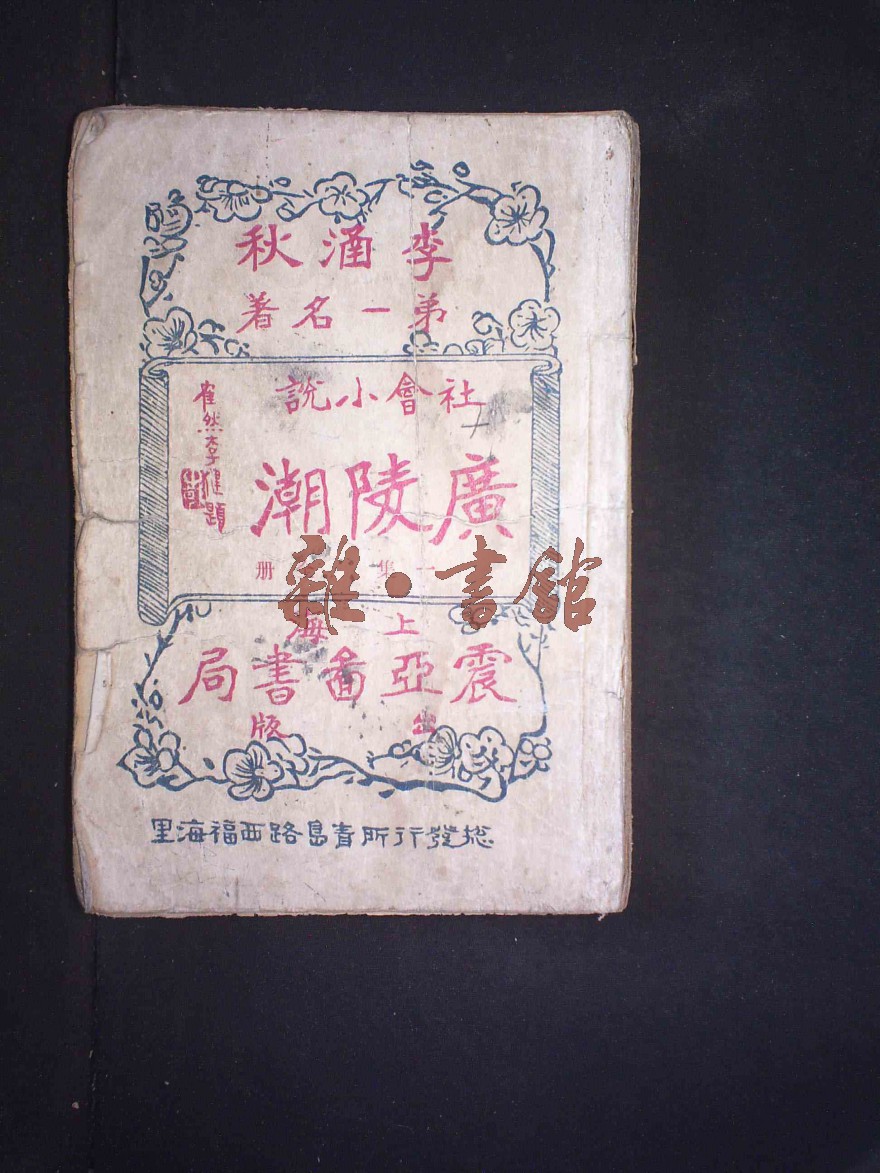 李涵秋
弟一名著
社會小說
廣陵潮
一集 册
隺然李健題
上海
震亞啚書局
出版
総發行所青島路西福海里
雜·書館